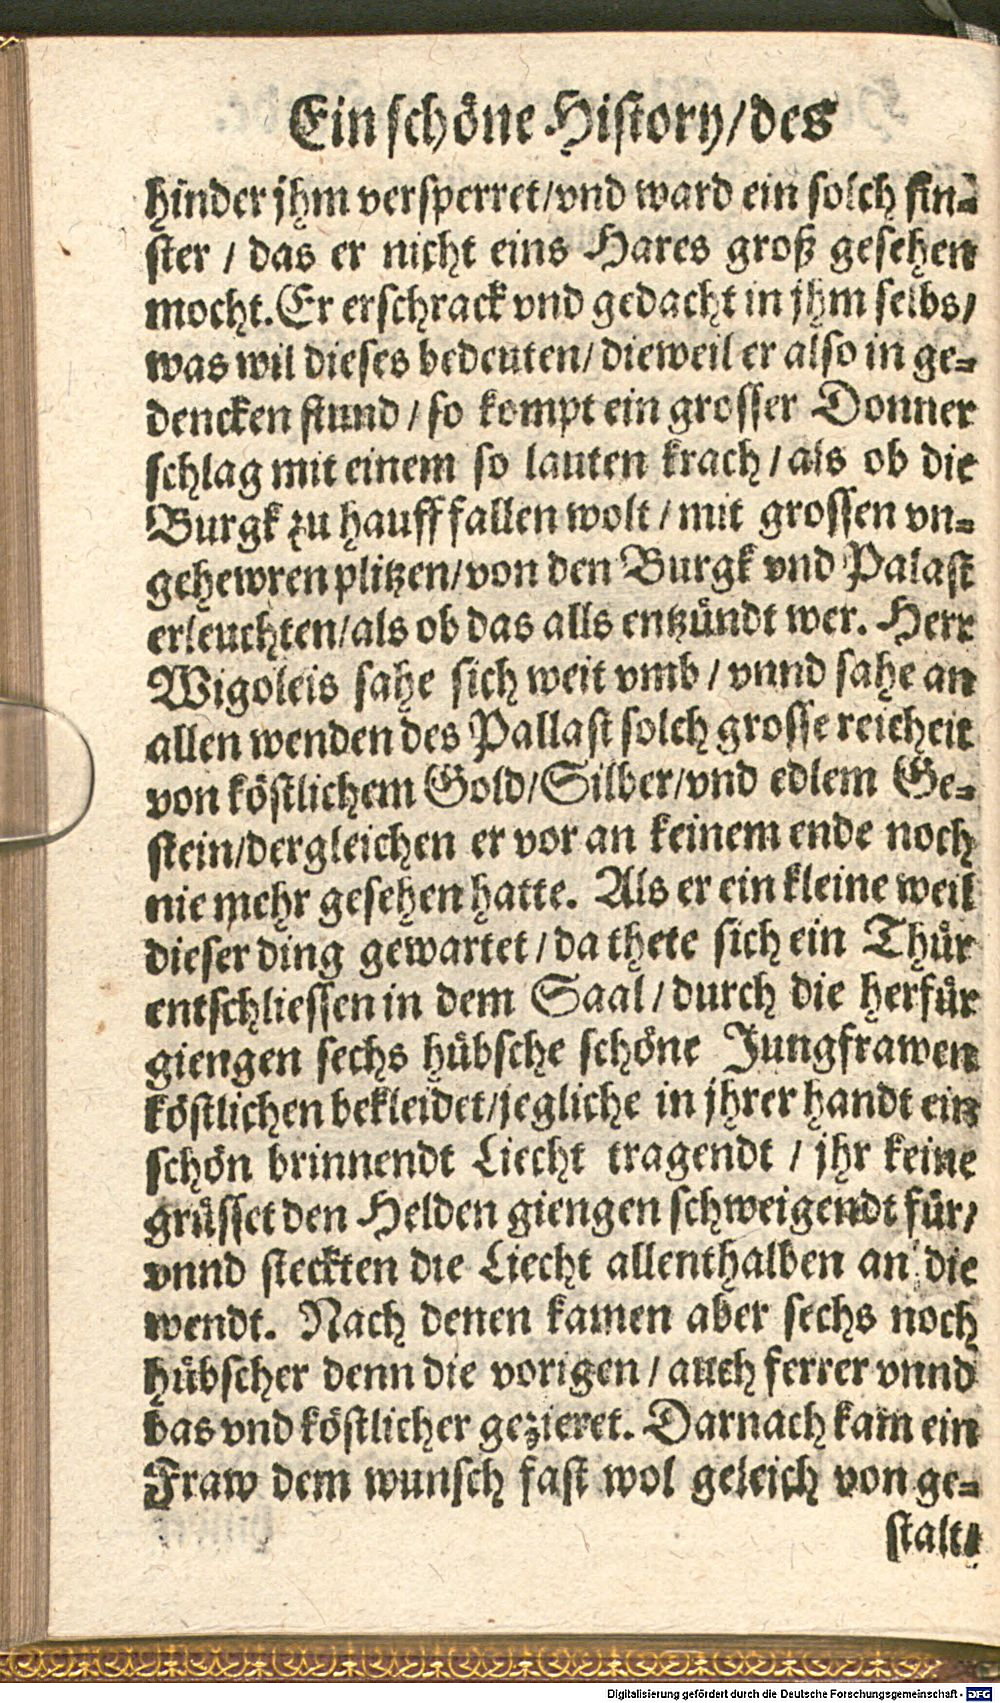 Ein schöne History/des
hinder jhm versperret/vnd ward ein solch fin⸗
ster / das er nicht eins Hares groß gesehen
mocht. Er erschrack vnd gedacht in jhm selbs/
was wil dieses bedeuten/ dieweil er also in ge⸗
dencken stund / so kompt ein grosser Donner
schlag mit einem so lauten krach / als ob die
Burgk zu hauff fallen wolt / mit grossen vn⸗
gehewren plitzen/von den Burgk vnd Palast
erleuchten/als ob das alls entzündt wer. Herr
Wigoleis sahe sich weit vmb / vnnd sahe an
allen wenden des Pallast solch grosse reicheit
von köstlichem Gold/Silber/vnd edlem Ge⸗
stein/dergleichen er vor an keinem ende noch
nie mehr gesehen hatte. Als er ein kleine weil
dieser ding gewartet / da thete sich ein Thür
entschliessen in dem Saal / durch die herfür
giengen sechs hübsche schöne Jungfrawen
köstlichen bekleidet/jegliche in jhrer handt ein
schön brinnendt Liecht tragendt / jhr keine
grüsset den Helden giengen schweigendt für/
vnnd steckten die Liecht allenthalben an die
wendt. Nach denen kamen aber sechs noch
hübscher denn die vorigen / auch ferrer vnnd
bas vnd köstlicher gezieret. Darnach kam ein
Fraw dem wunsch fast wol geleich von ge⸗
stalt/
Digitalisierung gefördert durch die Deutsche Forschungsgemeinschaft - DFG